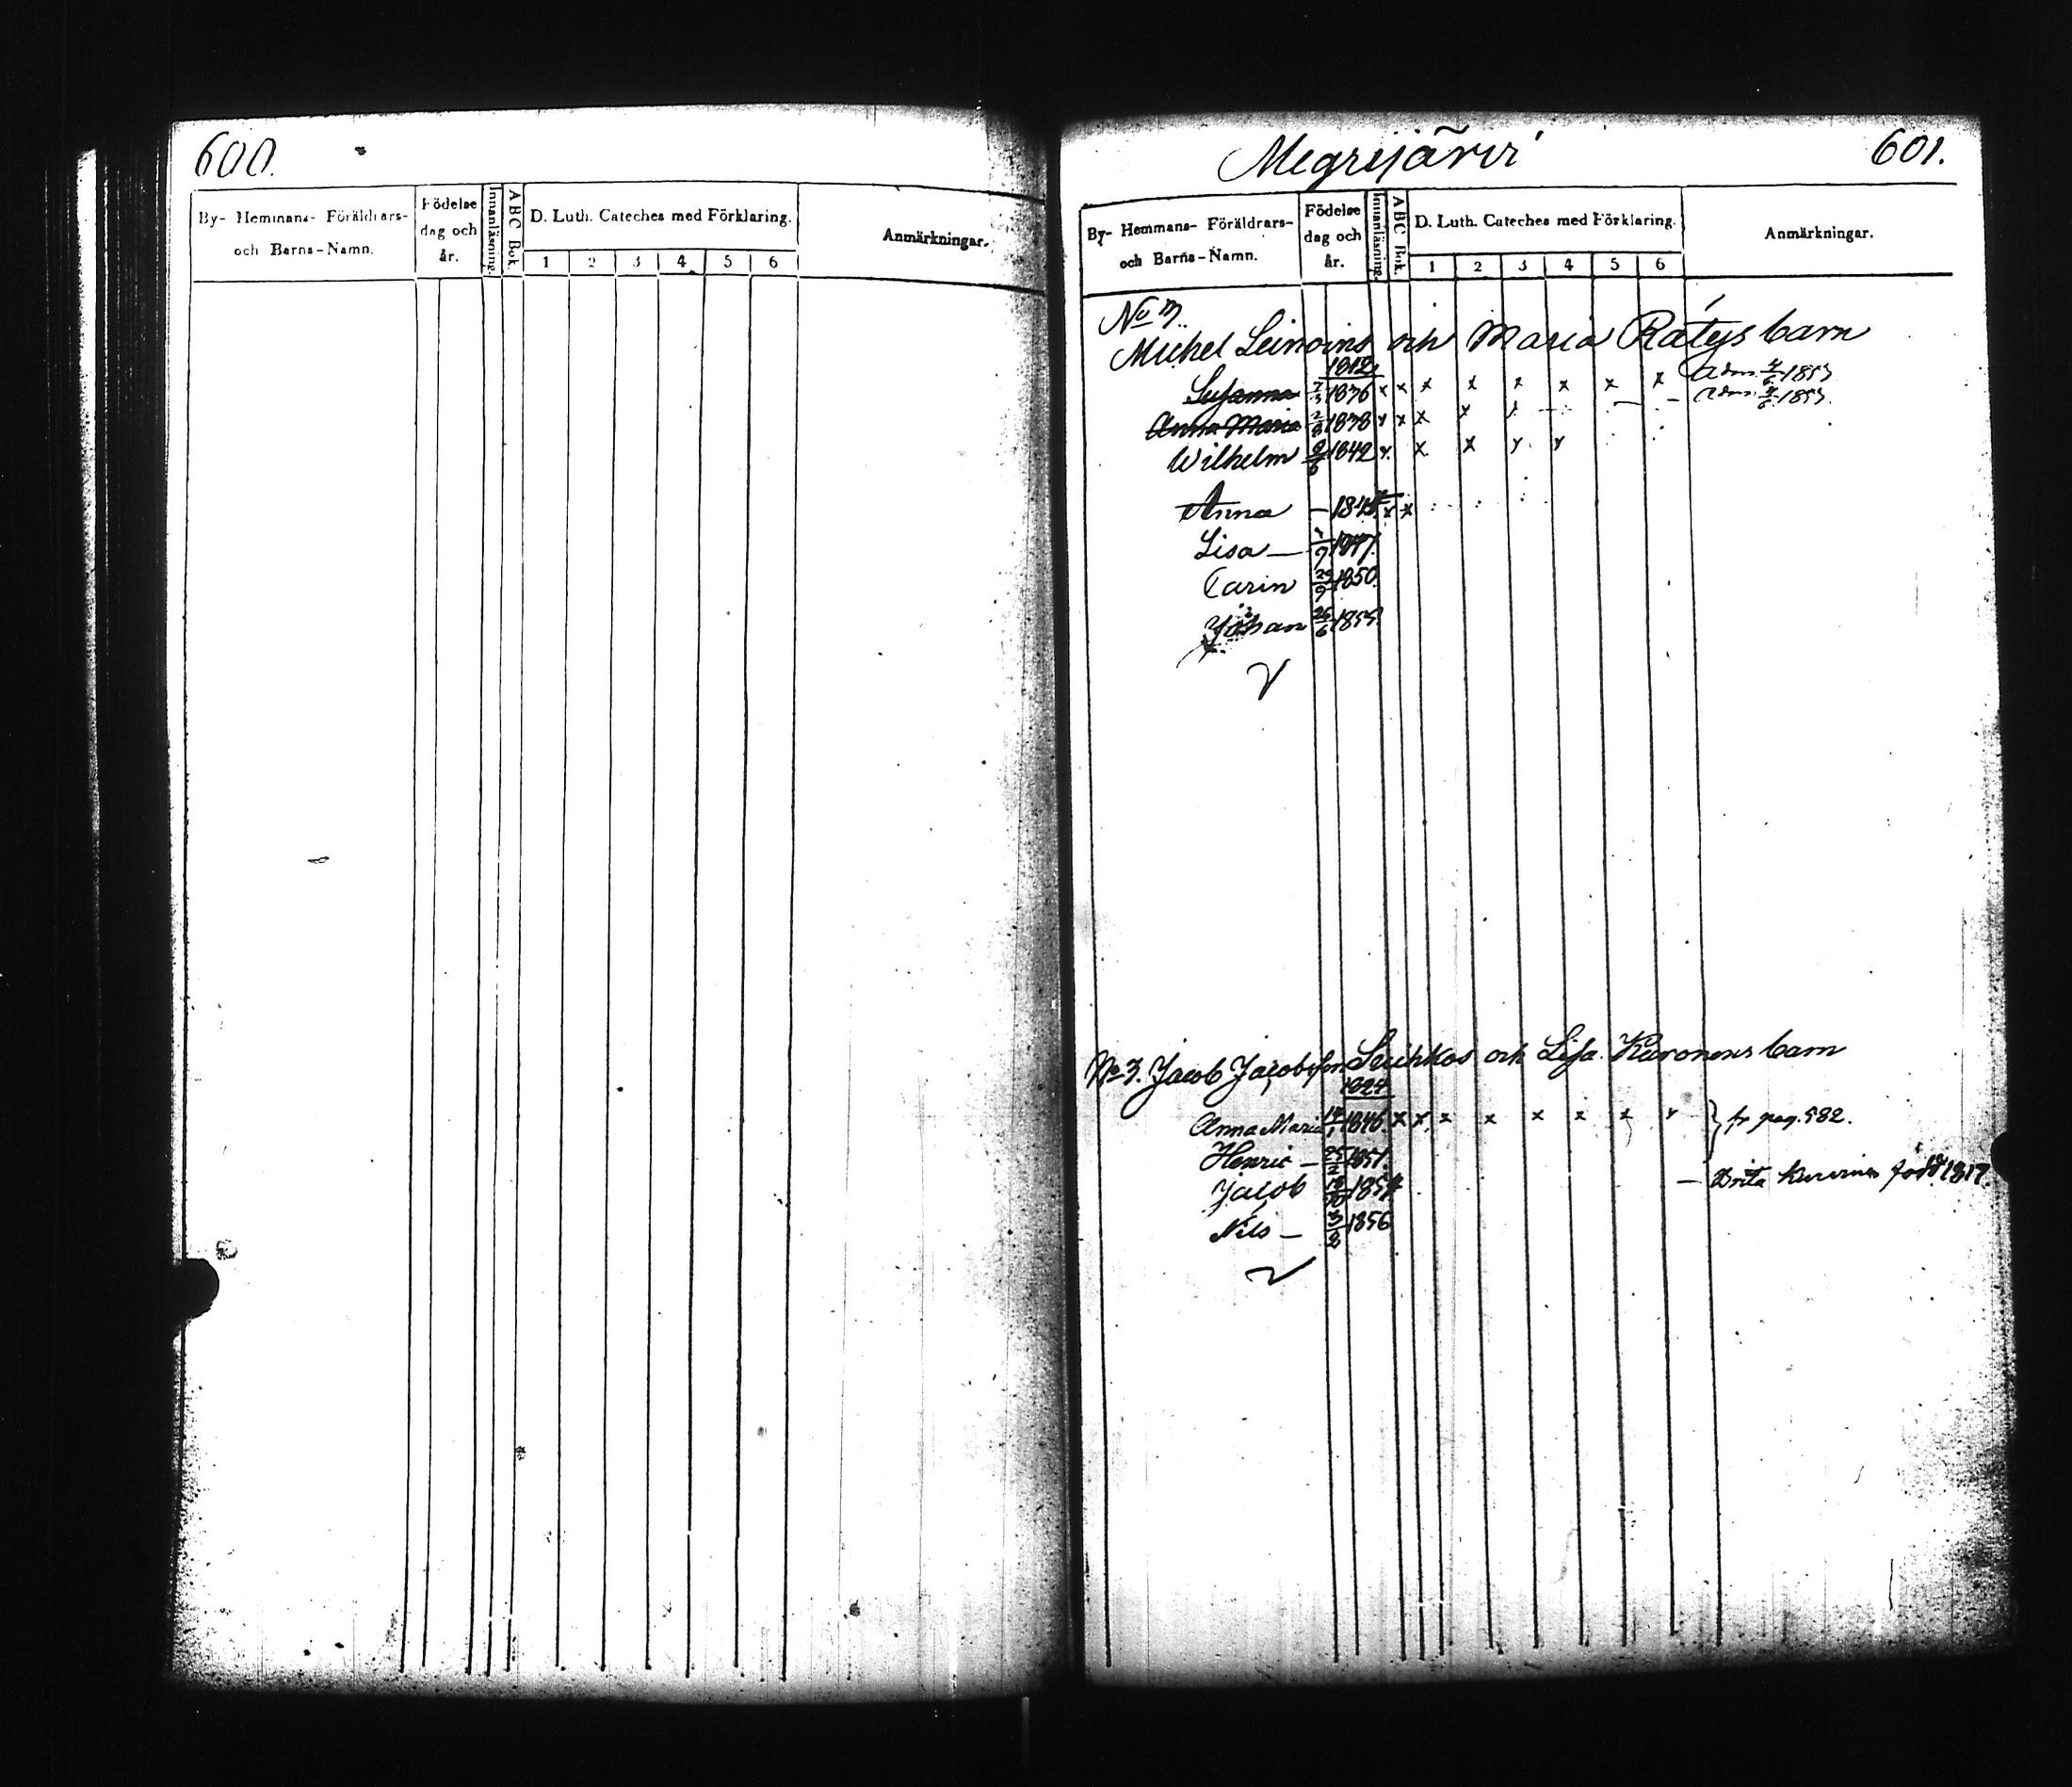 600.
By- Hemmans- Föräldrars- och Barns-Namn.
Födelse dag och år.
Innanläsning.
ABC Bok.
D. Luth. Cateches med Förklaring.
1 2 3 4 5 6
Anmärkningar.
Megrijärvi
601.
By- Hemmans- Föräldrars- och Barns-Namn.
Födelse dag och år.
Innanläsning.
ABC Bok.
D. Luth. Cateches med Förklaring.
1 2 3 4 5 6
Anmärkningar.
No 3.
Michel Leinoins och Maria Rätys barn
1812
Susanna 1836 x x x x x x x x Adm. 4/6 1853
Anna Maria 2/8 1838 x x x x Adm. 4/6 1853.
Wilhelm 1842 x x x
Anna — 184 x x
Lisa — 1847.
Carin 29/9 1850.
Johan 26/6 1855
No 3. Jacob Jacobsson och Lisa Kuronens barn
1824
Anna Maria 1846 x x x x x x x x } fr pag. 582.
Henric — 25/2 1851.
Jacob 1854 — Brita född 1817.
Nils — 3/2 1856